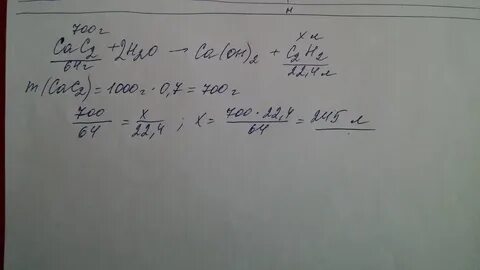 700г x л
CaC2 + 2H2O → Ca(OH)2 + C2H2
64г 22,4 л
m(CaC2) = 1000г · 0,7 = 700г
700/64 = x/22,4 ; x = 700 · 22,4/64 = 245 л